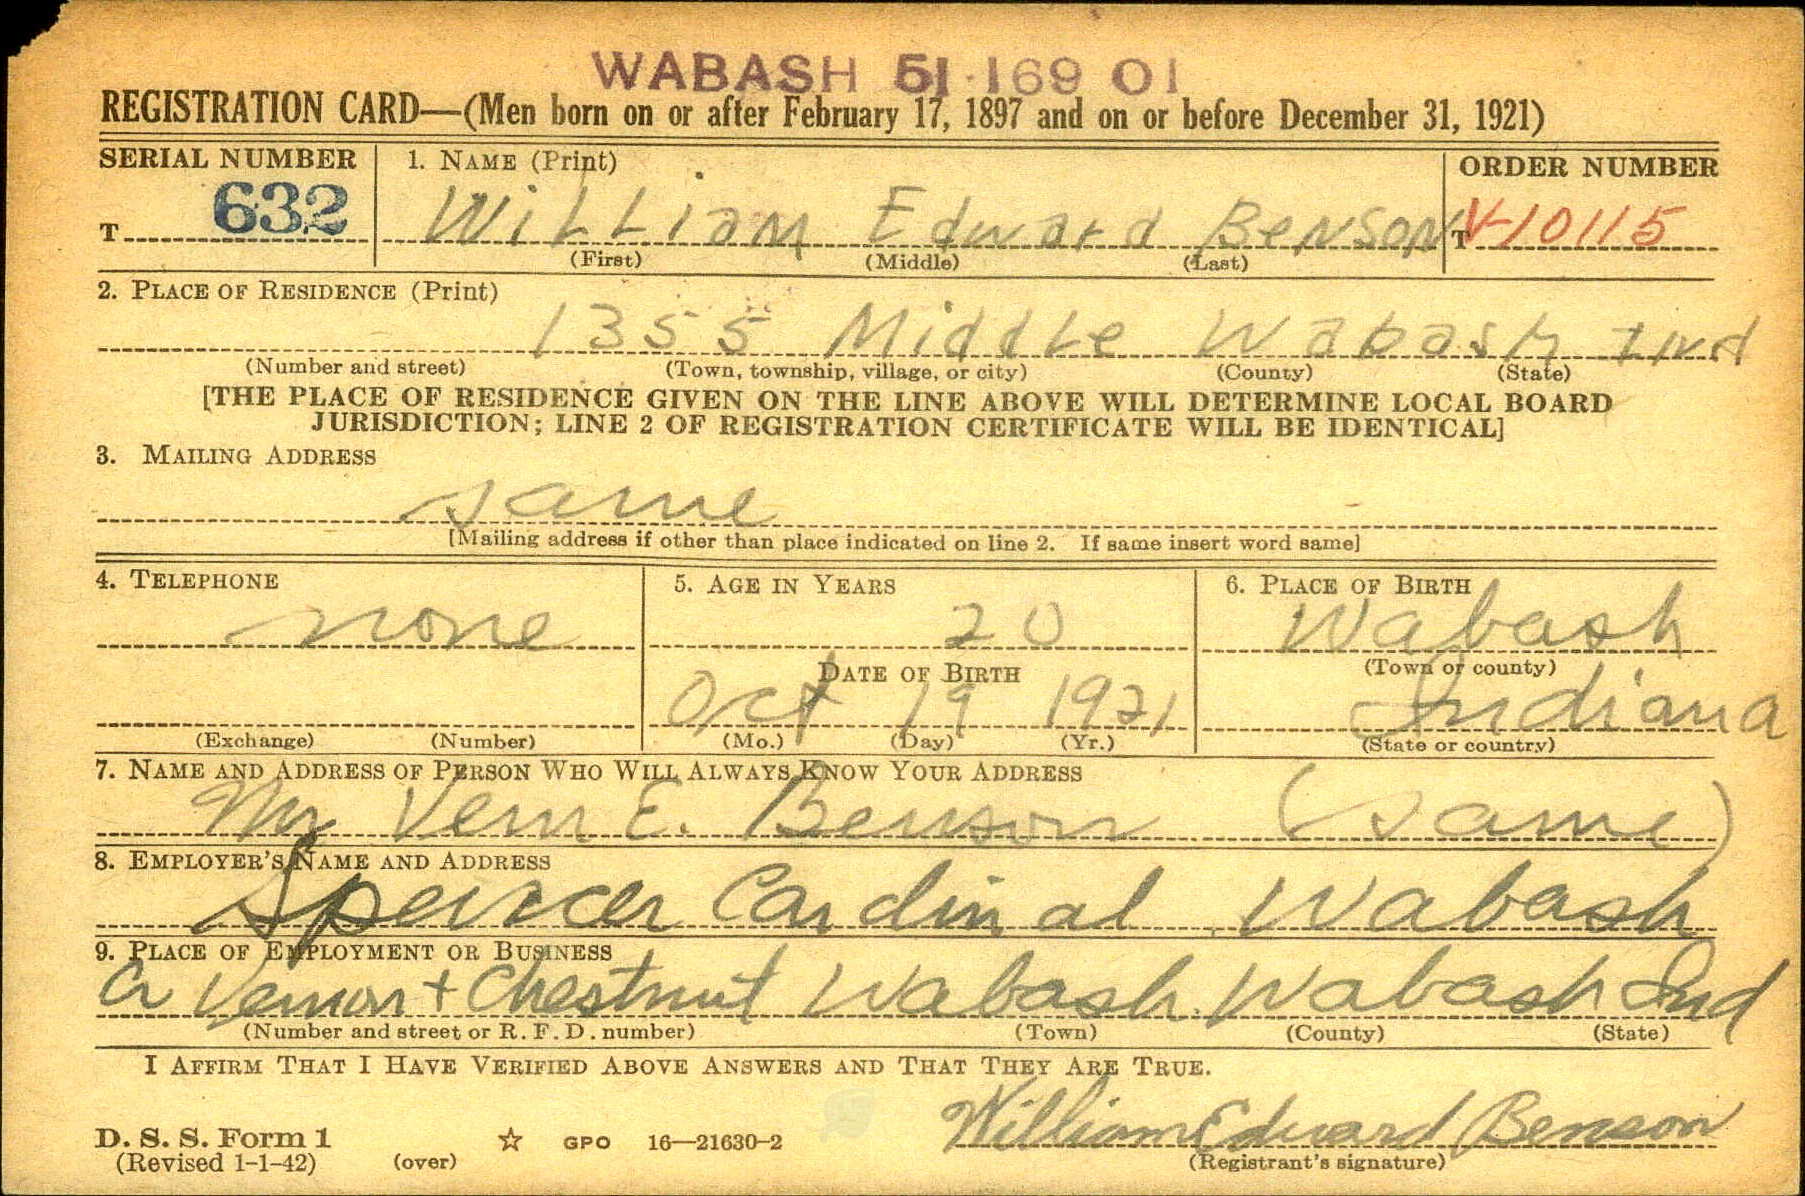 WABASH 51 169 01
REGISTRATION CARD—(Men born on or after February 17, 1897 and on or before December 31, 1921)
SERIAL NUMBER 1. NAME (Print) ORDER NUMBER
T 632 William Edward Benson T V-10115
(First) (Middle) (Last)
2. PLACE OF RESIDENCE (Print)
1355 Middle Wabash Ind
(Number and street) (Town, township, village, or city) (County) (State)
[THE PLACE OF RESIDENCE GIVEN ON THE LINE ABOVE WILL DETERMINE LOCAL BOARD
JURISDICTION; LINE 2 OF REGISTRATION CERTIFICATE WILL BE IDENTICAL]
3. MAILING ADDRESS
same
[Mailing address if other than place indicated on line 2. If same insert word same]
4. TELEPHONE 5. AGE IN YEARS 6. PLACE OF BIRTH
none 20 Wabash
DATE OF BIRTH (Town or county)
Oct 19 1921 Indiana
(Exchange) (Number) (Mo.) (Day) (Yr.) (State or country)
7. NAME AND ADDRESS OF PERSON WHO WILL ALWAYS KNOW YOUR ADDRESS
Mr Vern E. Benson (same)
8. EMPLOYER'S NAME AND ADDRESS
Spencer Cardinal Wabash
9. PLACE OF EMPLOYMENT OR BUSINESS
Vernon + Chestnut Wabash. Wabash Ind
(Number and street or R. F. D. number) (Town) (County) (State)
I AFFIRM THAT I HAVE VERIFIED ABOVE ANSWERS AND THAT THEY ARE TRUE.
William Edward Benson
D. S. S. Form 1 ☆ GPO 16—21630-2
(Revised 1-1-42) (over) (Registrant's signature)